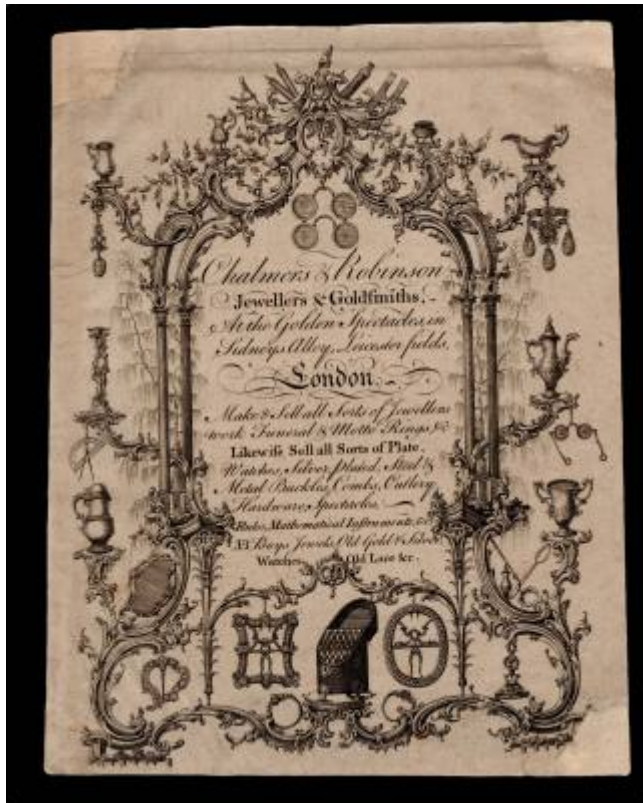 Chalmers & Robinson
Jewellers & Goldſmiths,
At the Golden Spectacles, in
Sidneys Alley, Leicester fields,
London.
Make & Sell all Sorts of Jewellers
work Funeral & Motto Rings &c
Likewiſe Sell all Sorts of Plate,
Watches, Silver, plated, Steel &
Metal Buckles, Combs, Cutlery
Hardware, Spectacles,
Rules, Mathematical Inſtruments, &c
Buys Jewels, Old Gold & Silver
Watches Old Lace &c.